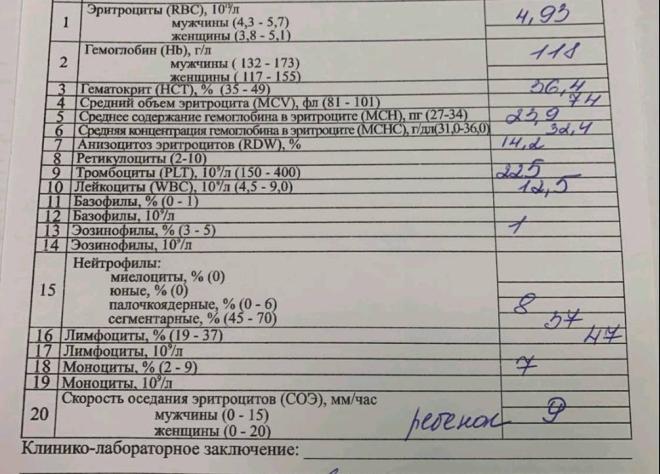 1 Эритроциты (RBC), 10¹²/л 4,93
мужчины (4,3 - 5,7)
женщины (3,8 - 5,1)
2 Гемоглобин (Hb), г/л 118
мужчины ( 132 - 173)
женщины ( 117 - 155)
3 Гематокрит (HCT), % (35 - 49) 36,4
4 Средний объем эритроцита (MCV), фл (81 - 101) 74
5 Среднее содержание гемоглобина в эритроците (MCH), пг (27-34) 23,9
6 Средняя концентрация гемоглобина в эритроците (MCHC), г/дл(31,0-36,0) 32,4
7 Анизоцитоз эритроцитов (RDW), % 14,2
8 Ретикулоциты (2-10)
9 Тромбоциты (PLT), 10⁹/л (150 - 400) 225
10 Лейкоциты (WBC), 10⁹/л (4,5 - 9,0) 12,5
11 Базофилы, % (0 - 1)
12 Базофилы, 10⁹/л
13 Эозинофилы, % (3 - 5) 1
14 Эозинофилы, 10⁹/л
15 Нейтрофилы:
миелоциты, % (0)
юные, % (0)
палочкоядерные, % (0 - 6) 8
сегментарные, % (45 - 70) 37
16 Лимфоциты, % (19 - 37) 47
17 Лимфоциты, 10⁹/л
18 Моноциты, % (2 - 9) 7
19 Моноциты, 10⁹/л
20 Скорость оседания эритроцитов (СОЭ), мм/час
мужчины (0 - 15) ребенок 9
женщины (0 - 20)
Клинико-лабораторное заключение: